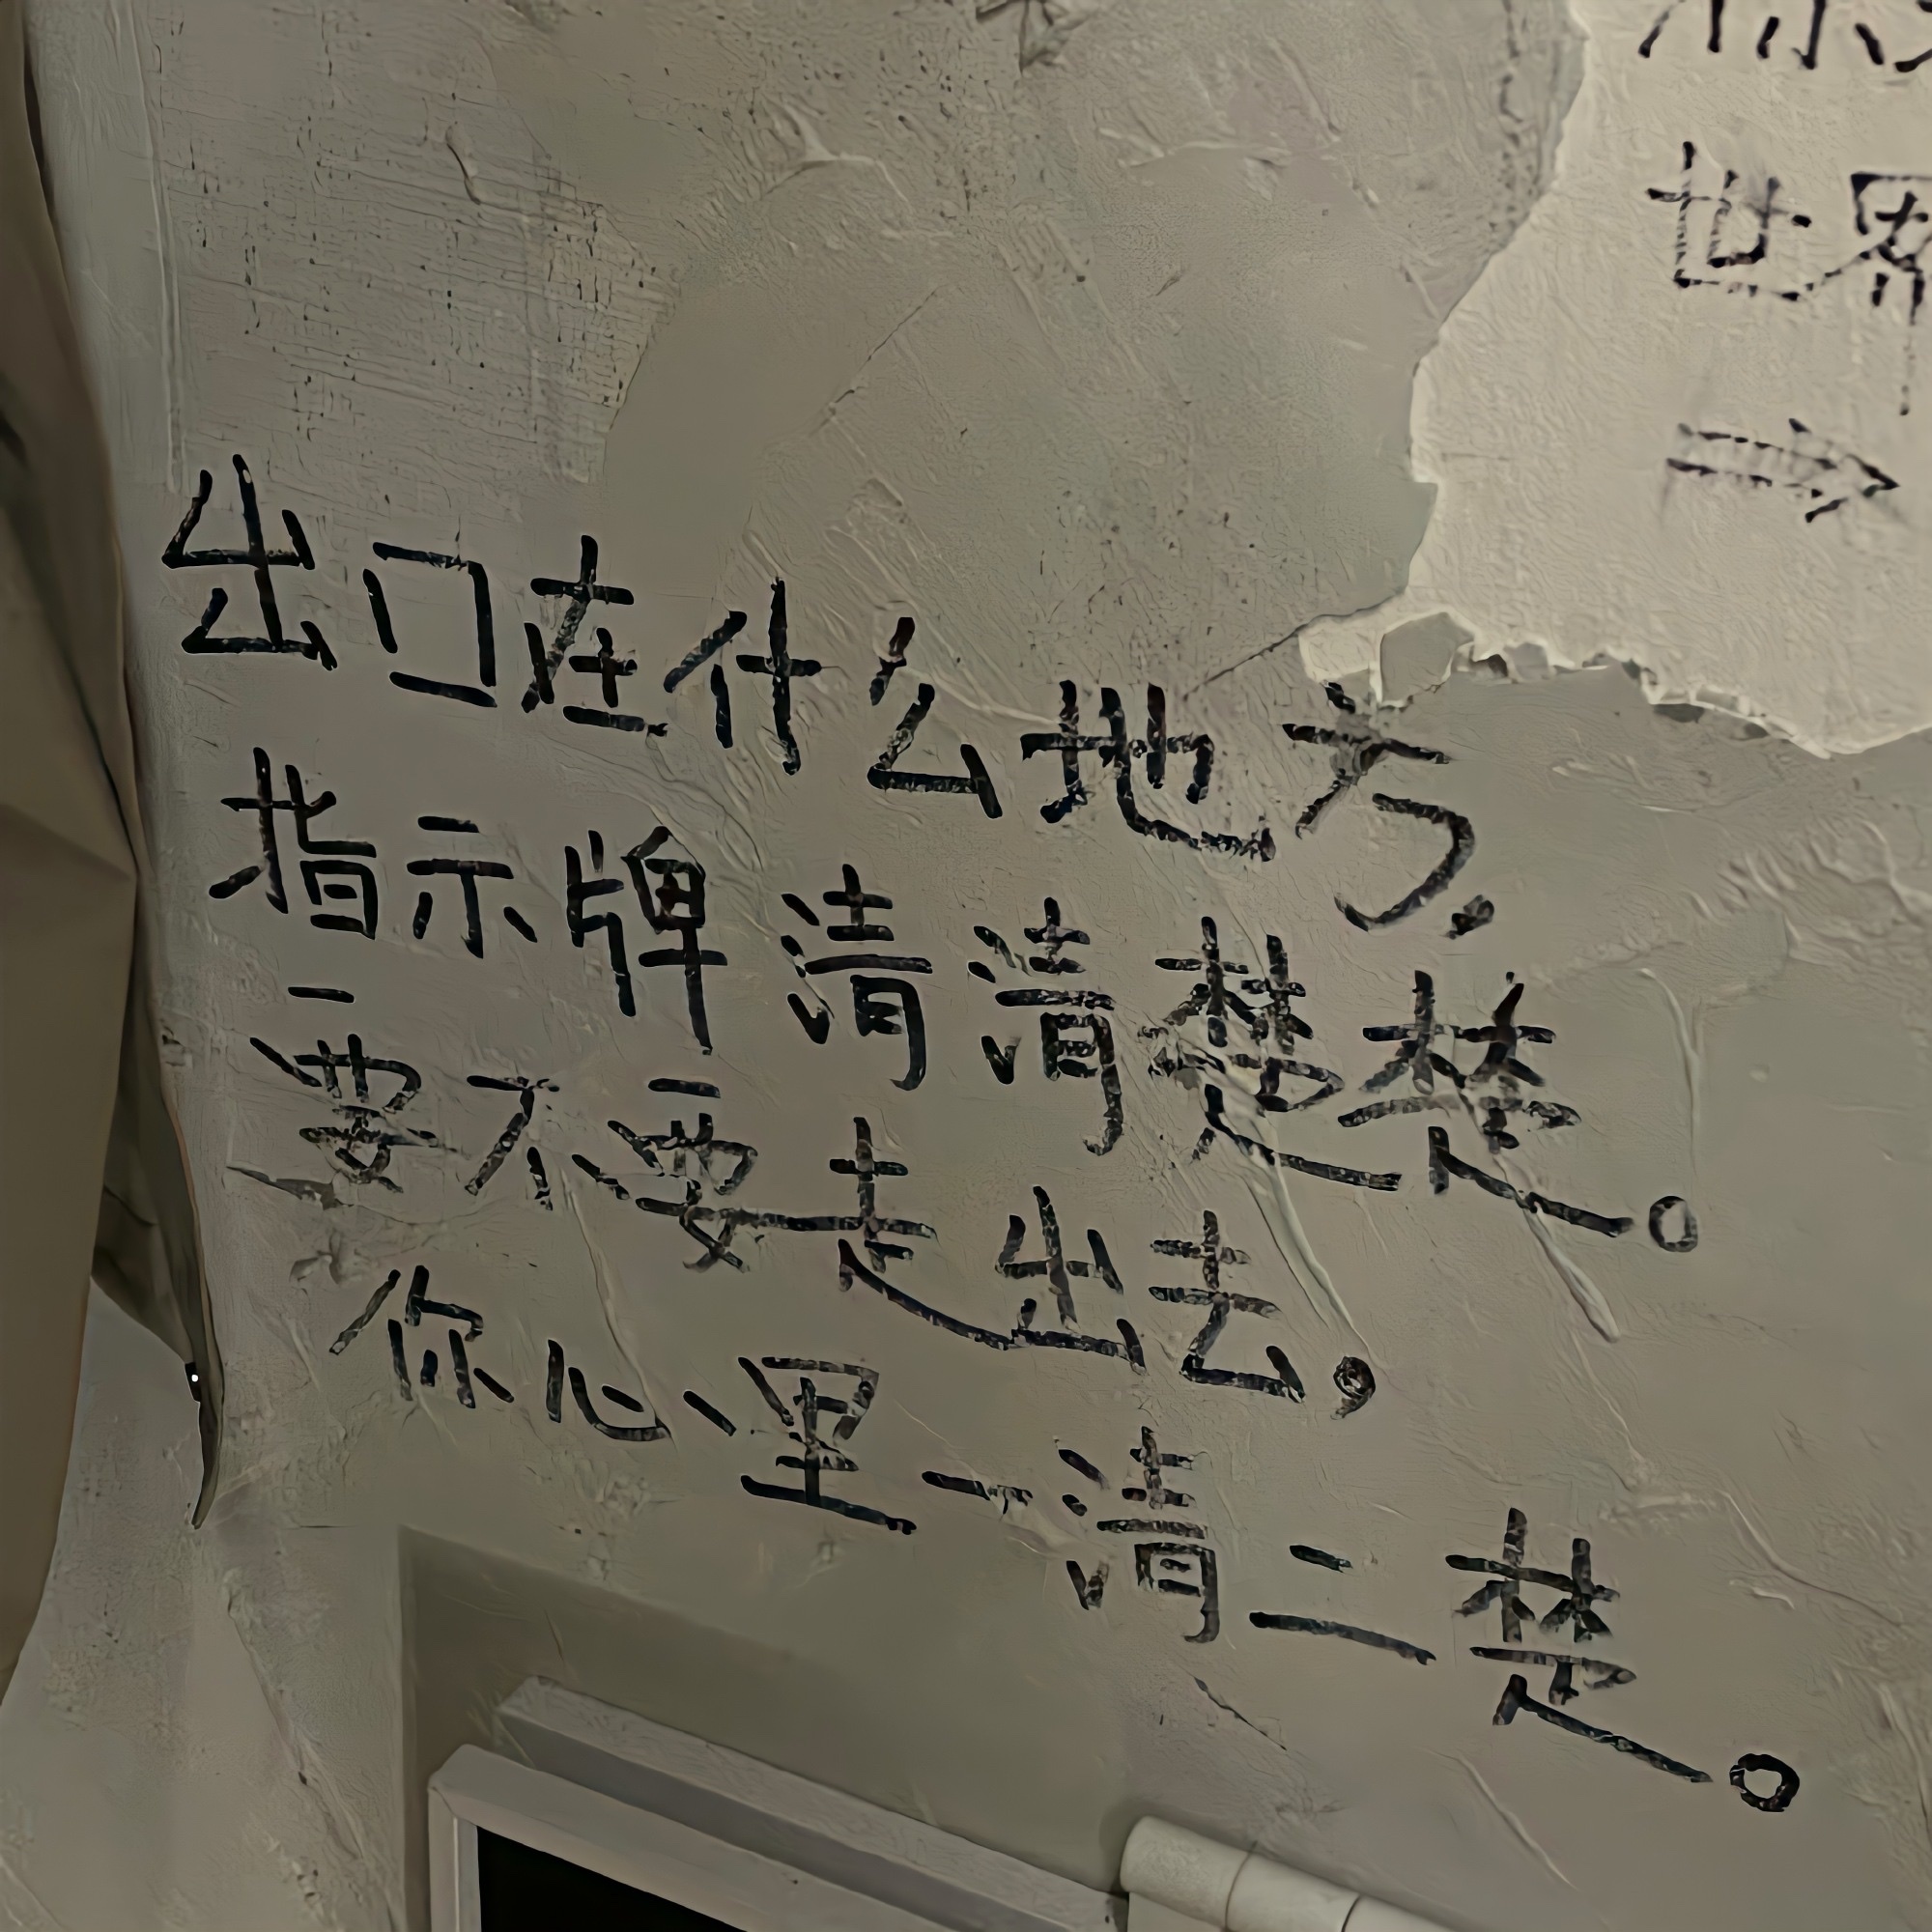 世界
⇒
出口在什么地方,
指示牌清清楚楚。
要不要走出去,
你心里一清二楚。